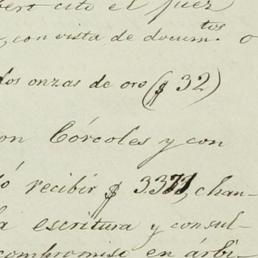 bert citó el juez
con vista de docum.tos o
dos onzas de oro ($ 32)
on Córcoles y con
ó recibir $ 3371, chan-
a escritura y consul-
compromiso en árbi-